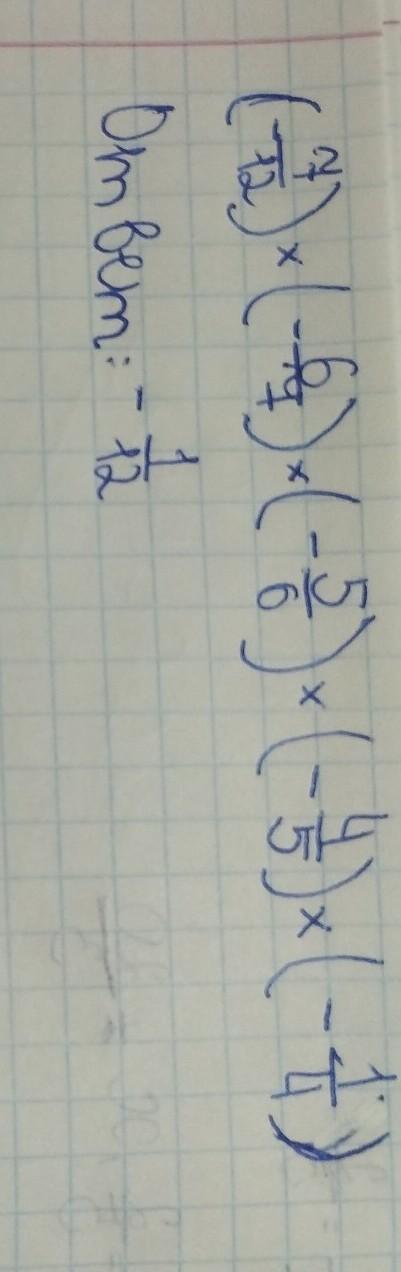 (-7/12) × (-6/7) × (-5/6) × (-4/5) × (-1/4)
Ответ: -1/12